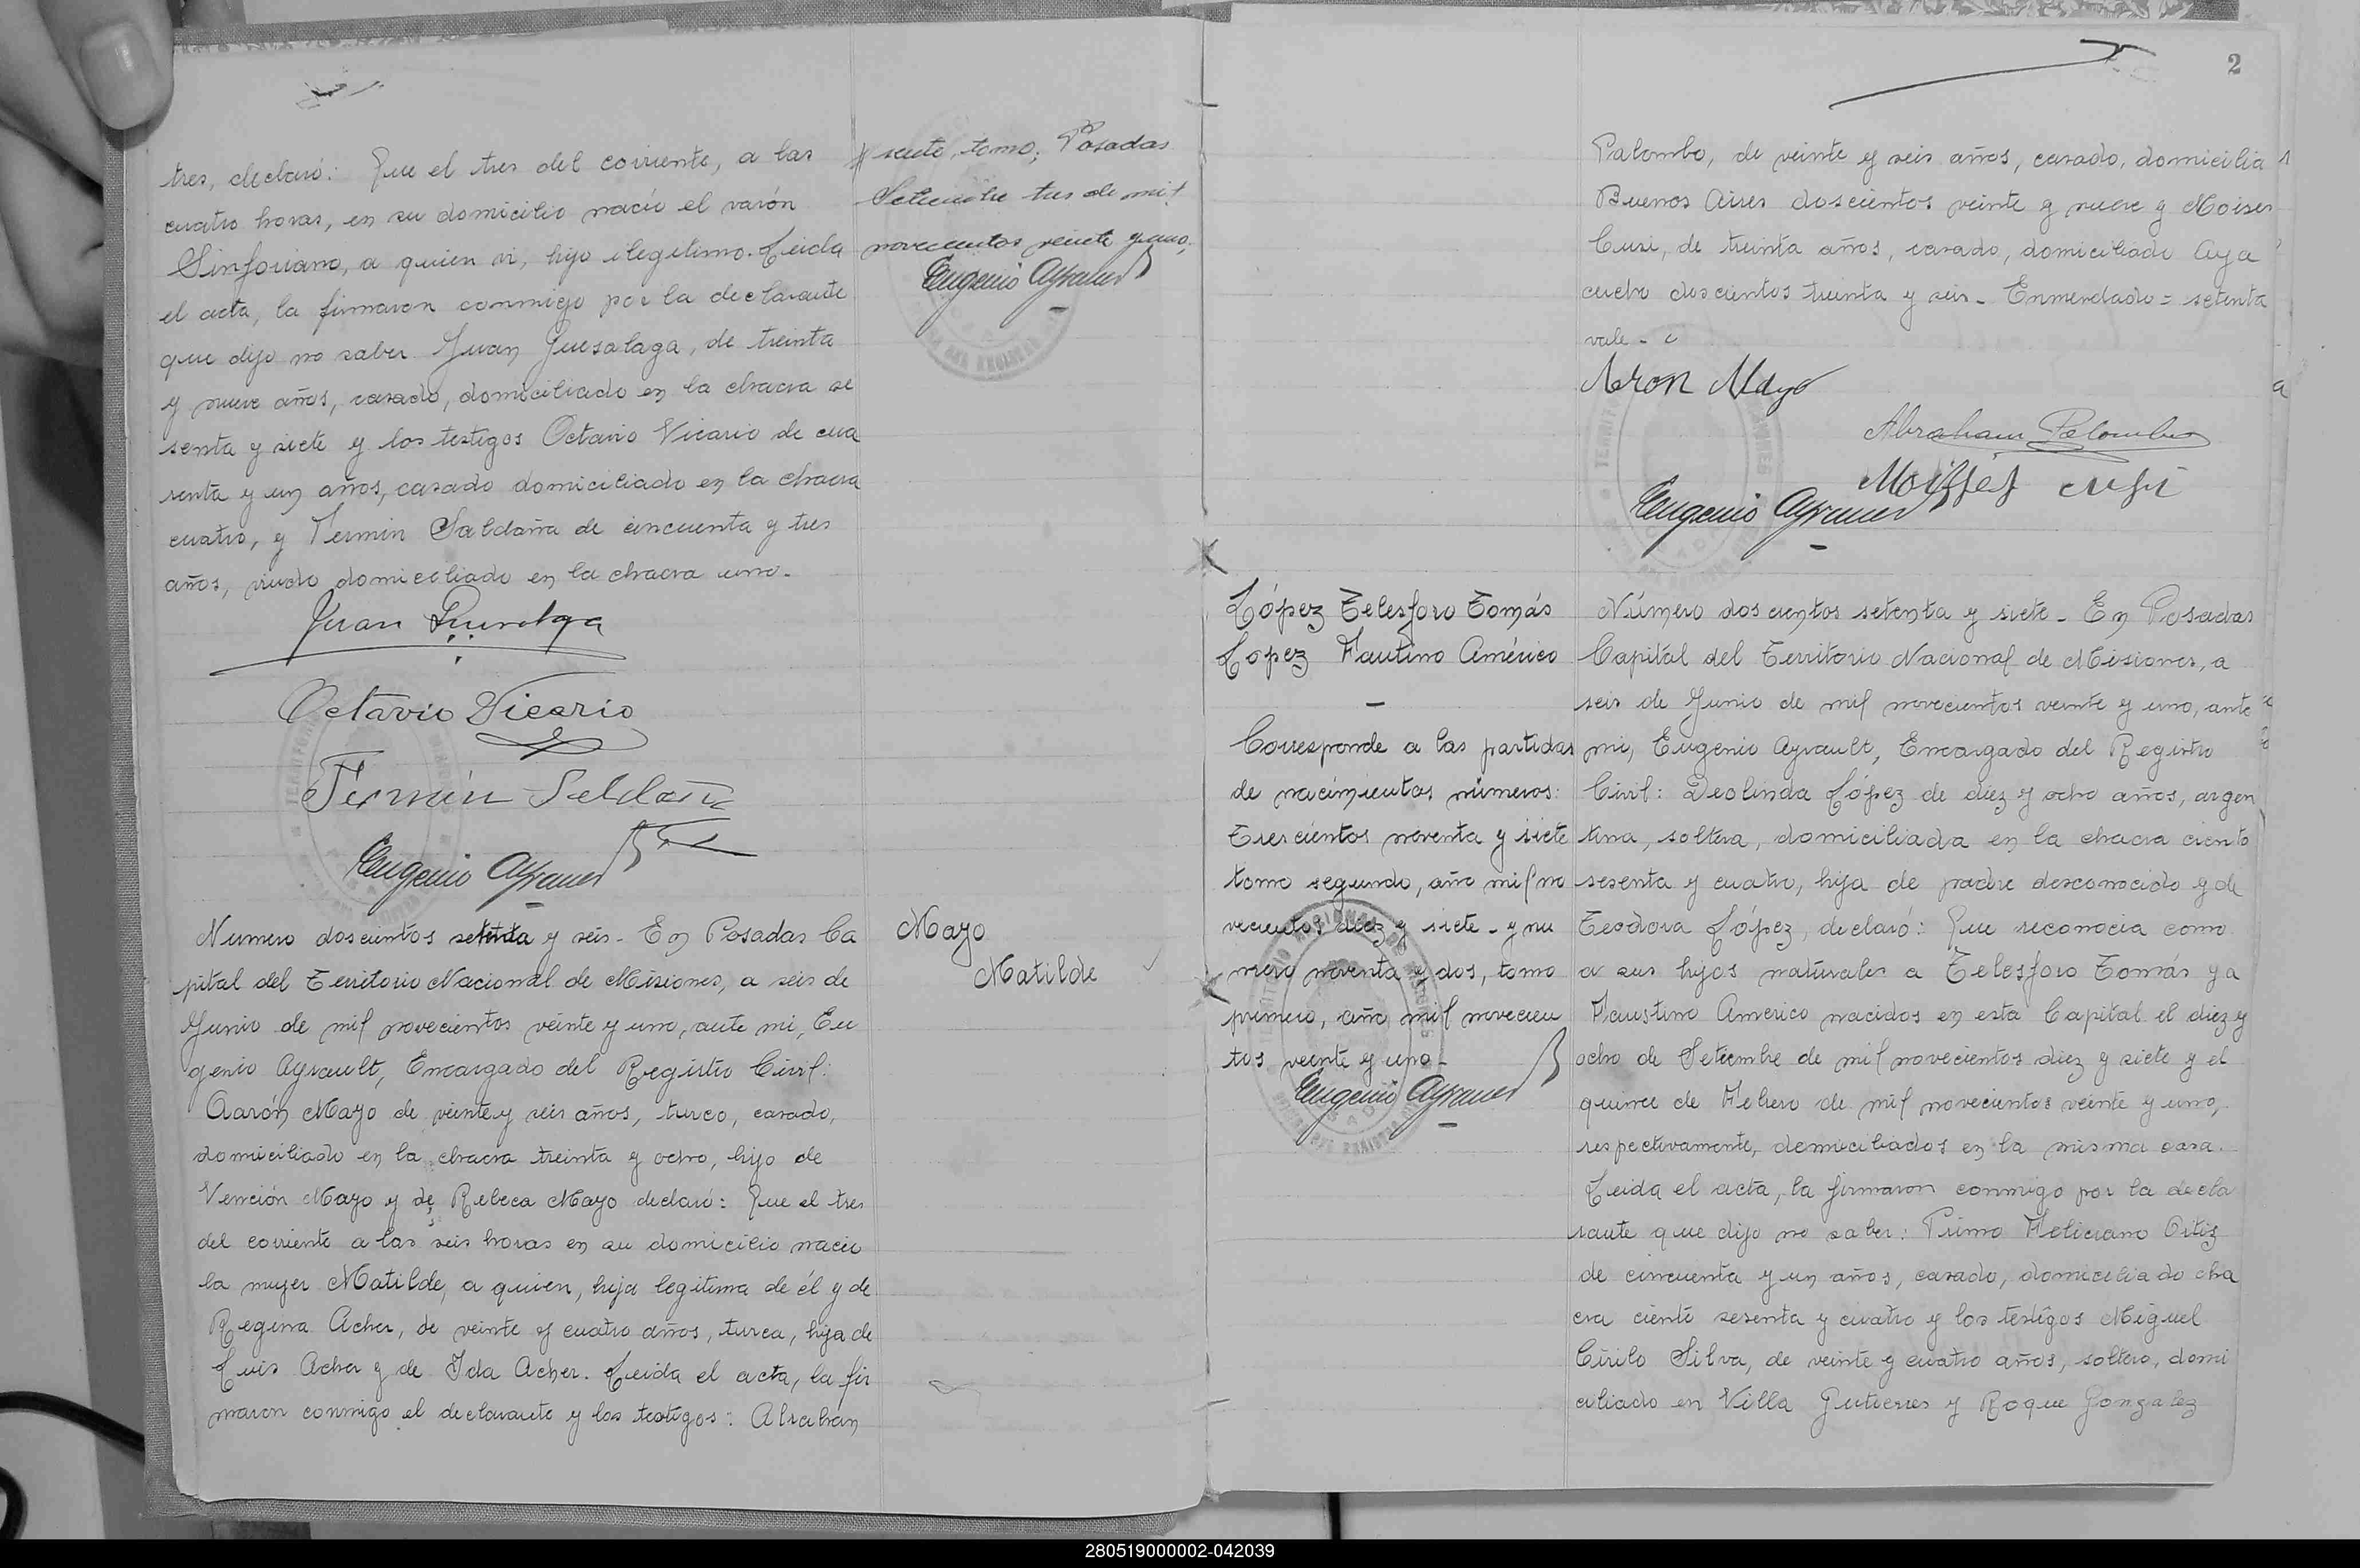 tres, declaró: Que el tres del corriente, a las
cuatro horas, en su domicilio nació el varón
Sinforiano, a quien vi, hijo ilegítimo. Leida
el acta, la firmaron conmigo por la declarante
que dijo no saber Juan Guesalaga, de treinta
y nueve años, casado, domiciliado en la chacra se
senta y siete y los testigos Octavio Vicario de cua
renta y un años, casado domiciliado en la chacra
cuatro, y Fermin Saldaña de cincuenta y tres
años, viudo domiciliado en la chacra uno.
Juan
Octavio Vicario
Fermín Saldaña
Eugenio Ayrault
tomo; Posadas
Setiembre tres de mil
novecientos veinte y uno.
Eugenio Ayrault
Numero doscientos setenta y seis - En Posadas Ca
pital del Territorio Nacional de Misiones, a seis de
Junio de mil novecientos veinte y uno, ante mi, Eu
genio Ayrault, Encargado del Registro Civil:
Aarón Mayo de veinte y seis años, turco, casado,
domiciliado en la chacra treinta y ocho, hijo de
Vención Mayo y de Rebeca Mayo declaró: Que el tres
del corriente a las seis horas en su domicilio nacio
la mujer Matilde, a quien, hija legitima de él y de
Regina Acher, de veinte y cuatro años, turca, hija de
Luis Acher y de Ida Acher. Leida el acta, la fir
maron conmigo el declarante y los testigos: Abrahán
Mayo
Matilde
2
Palombo, de veinte y seis años, casado, domicilia
Buenos Aires doscientos veinte y nueve y Moises
Cusi, de treinta años, casado, domiciliado Aya
cucho doscientos treinta y seis - Enmendado = setenta
vale -
Aron Mayo
Abraham Palombo
Moisses Cusi
Eugenio Ayrault
López Telesforo Tomás
Lopez Fautino Américo
Corresponde a las partidas
de nacimientos números:
Trescientos noventa y siete
tomo segundo, año mil no
vecientos diez y siete - y nu
mero noventa y dos, tomo
primero, año mil novecien
tos veinte y uno -
Eugenio Ayrault
Número doscientos setenta y siete - En Posadas
Capital del Territorio Nacional de Misiones, a
seis de Junio de mil novecientos veinte y uno, ante
mi, Eugenio Ayrault, Encargado del Registro
Civil: Deolinda López de diez y ocho años, argen
tina, soltera, domiciliada en la chacra ciento
sesenta y cuatro, hija de padre desconocido y de
Teodora López, declaró: Que reconocia como
a sus hijos naturales a Telesforo Tomás y a
Faustino Americo nacidos en esta Capital el diez y
ocho de Setiembre de mil novecientos diez y siete y el
quince de Febrero de mil novecientos veinte y uno,
respectivamente, domiciliados en la misma casa.
Leida el acta, la firmaron conmigo por la decla
rante que dijo no saber: Primo Feliciano Ortiz
de cincuenta y un años, casado, domiciliado cha
cra ciento sesenta y cuatro y los testigos Miguel
Cirilo Silva, de veinte y cuatro años, soltero, domi
ciliado en Villa Gutierres y Roque Gonzalez
280519000002-042039